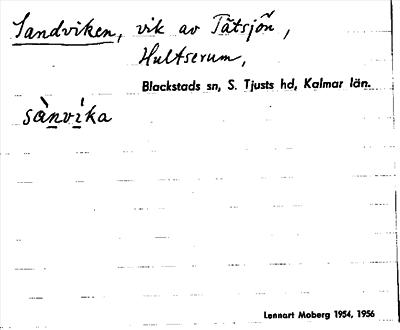 Sandviken, vik av Tätsjön,
Hultserum,
Blackstads sn, S. Tjusts hd, Kalmar län.
sànvíka
Lennart Moberg 1954, 1956